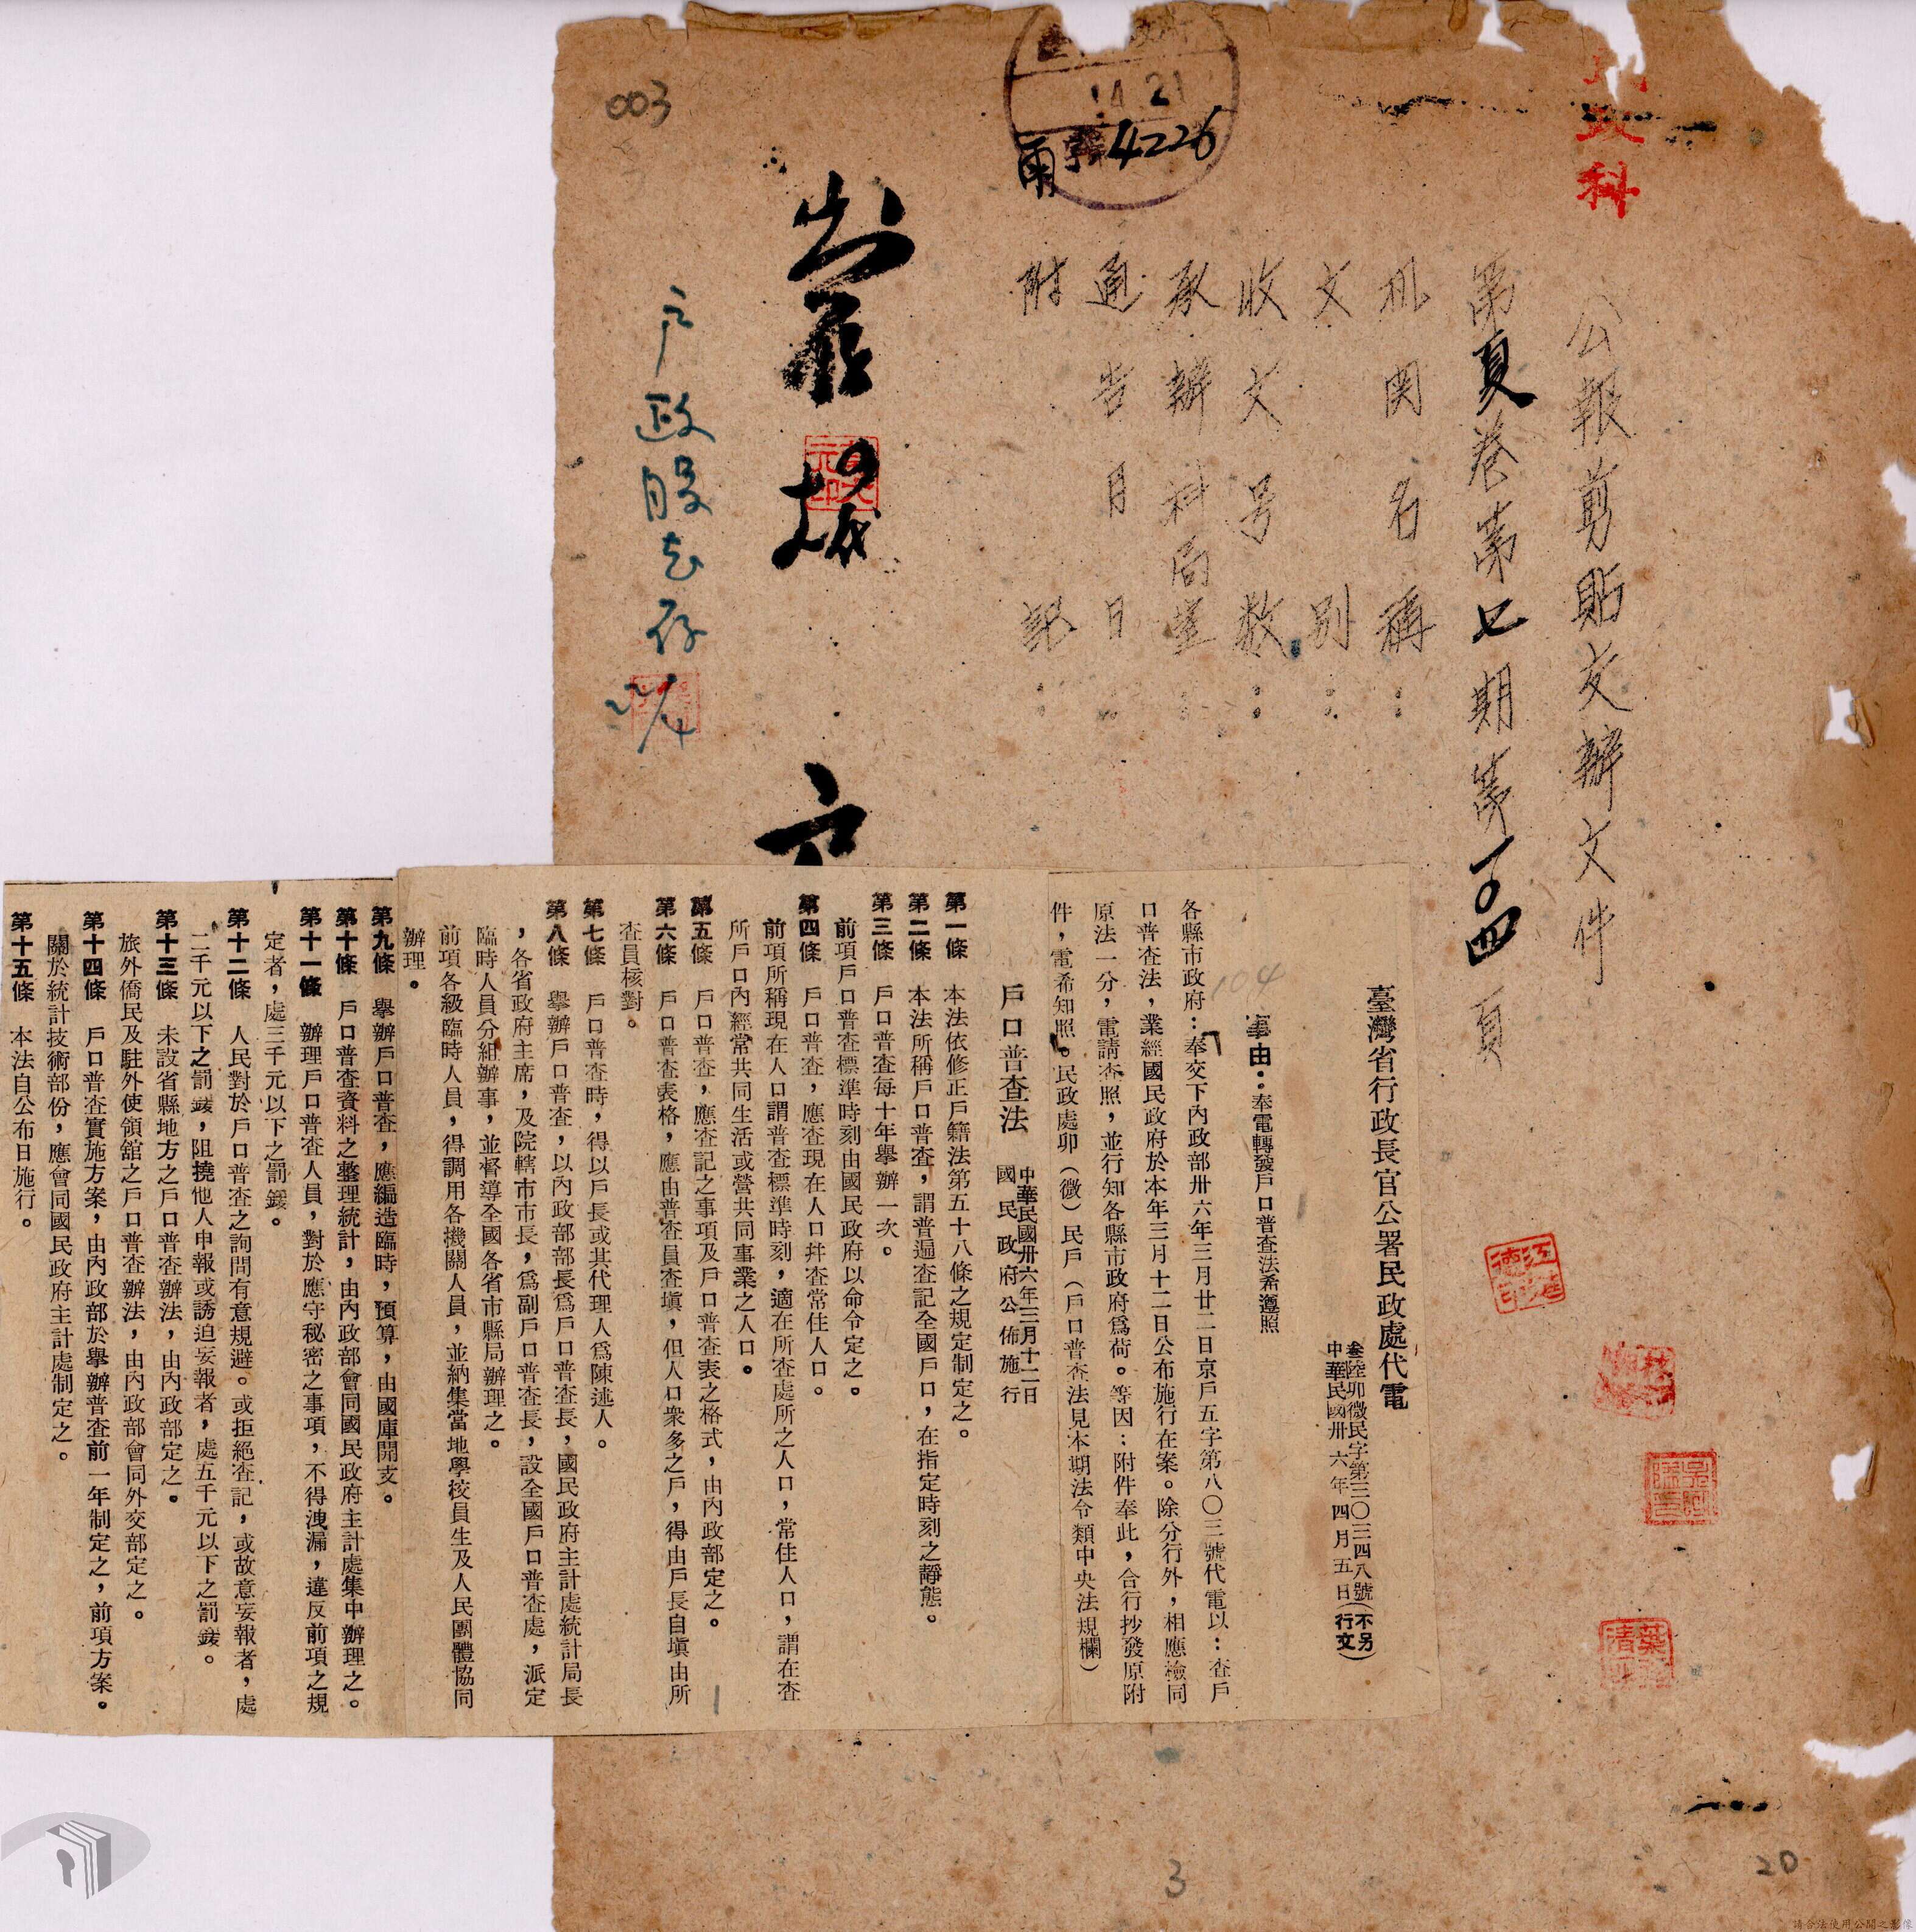 003
14 21
4226
政科
公報剪貼交辦文件
第夏卷第七期第一〇四頁
机関名稱：
文別：
收文号数：
承辦科局室：
通告月日：
附記：
戶政股
存
臺灣省行政長官公署民政處代電
叁陸卯微民字第三〇三四八號
中華民國卅六年四月五日
(不另行文)
事由：奉電轉發戶口普查法希遵照
104
各縣市政府：奉交下內政部卅六年三月廿二日京戶五字第八〇三號代電以：查戶
口普查法，業經國民政府於本年三月十二日公布施行在案。除分行外，相應檢同
原法一分，電請查照，並行知各縣市政府爲荷。等因：附件奉此，合行抄發原附
件，電希知照。民政處卯（微）民戶（戶口普查法見本期法令類中央法規欄）
戶口普查法
中華民國卅六年三月十二日
國民政府公佈施行
第一條　本法依修正戶籍法第五十八條之規定制定之。
第二條　本法所稱戶口普查，謂普遍查記全國戶口，在指定時刻之靜態。
第三條　戶口普查每十年舉辦一次。
前項戶口普查標準時刻由國民政府以命令定之。
第四條　戶口普查，應查現在人口幷查常住人口。
前項所稱現在人口謂普查標準時刻，適在所查處所之人口，常住人口，謂在查
所戶口內經常共同生活或營共同事業之人口。
第五條　戶口普查，應查記之事項及戶口普查表之格式，由內政部定之。
第六條　戶口普查表格，應由普查員查塡，但人口衆多之戶，得由戶長自塡由所
查員核對。
第七條　戶口普查時，得以戶長或其代理人爲陳述人。
第八條　舉辦戶口普查，以內政部部長爲戶口普查長，國民政府主計處統計局長
，各省政府主席，及院轄市市長，爲副戶口普查長，設全國戶口普查處，派定
臨時人員分組辦事，並督導全國各省市縣局辦理之。
前項各級臨時人員，得調用各機關人員，並納集當地學校員生及人民團體協同
辦理。
第九條　舉辦戶口普查，應編造臨時，預算，由國庫開支。
第十條　戶口普查資料之整理統計，由內政部會同國民政府主計處集中辦理之。
第十一條　辦理戶口普查人員，對於應守秘密之事項，不得洩漏，違反前項之規
定者，處三千元以下之罰鍰。
第十二條　人民對於戶口普查之詢問有意規避。或拒絕查記，或故意妄報者，處
二千元以下之罰鍰，阻撓他人申報或誘迫妄報者，處五千元以下之罰鍰。
第十三條　未設省縣地方之戶口普查辦法，由內政部定之。
旅外僑民及駐外使領舘之戶口普查辦法，由內政部會同外交部定之。
第十四條　戶口普查實施方案，由內政部於舉辦普查前一年制定之，前項方案。
關於統計技術部份，應會同國民政府主計處制定之。
第十五條　本法自公布日施行。
3
20
請合法使用公開之影像